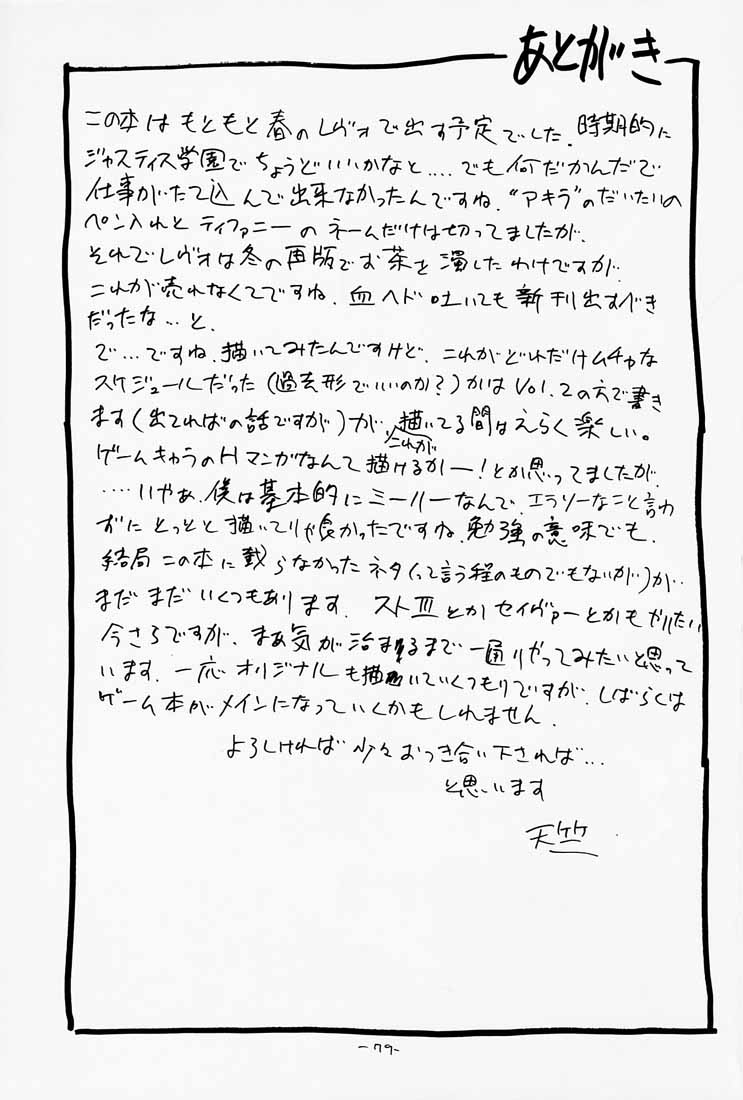 あとがき
この本はもともと春のレヴォで出す予定でした。時期的に
ジャスティス学園でちょうどいいかなと....でも何だかんだで
仕事がたて込んで出来なかったんですね。“アキラ”のだいたいの
ペン入れとティファニーのネームだけは切ってましたが。
それでレヴォは冬の再版でお茶を濁したわけですが
これが売れなくてですね。血ヘド吐いても新刊出すべき
だったな...と。
で...ですね。描いてみたんですけど、これがどれだけムチャな
スケジュールだった(過去形でいいのか?)かはVol.2の方で書き
ます(出てればの話ですが)が、描いてる間はえらく楽しい。
これが
ゲームキャラのHマンガなんて描けるかー!とか思ってましたが、
....いやあ、僕は基本的にミーハーなんで、エラソーなこと言わ
ずにとっとと描いてりゃ良かったですね。勉強の意味でも。
結局この本に載らなかったネタ(って言う程のものでもないが)が
まだまだいくつもあります。ストⅢとかセイヴァーとかもやりたい
今さらですが、まあ気が治まるまで一通りやってみたいと思って
います。一応オリジナルも描いていくつもりですが、しばらくは
ゲーム本がメインになっていくかもしれません。
よろしければ少々おつき合い下されば...
と思います
天竺
-79-